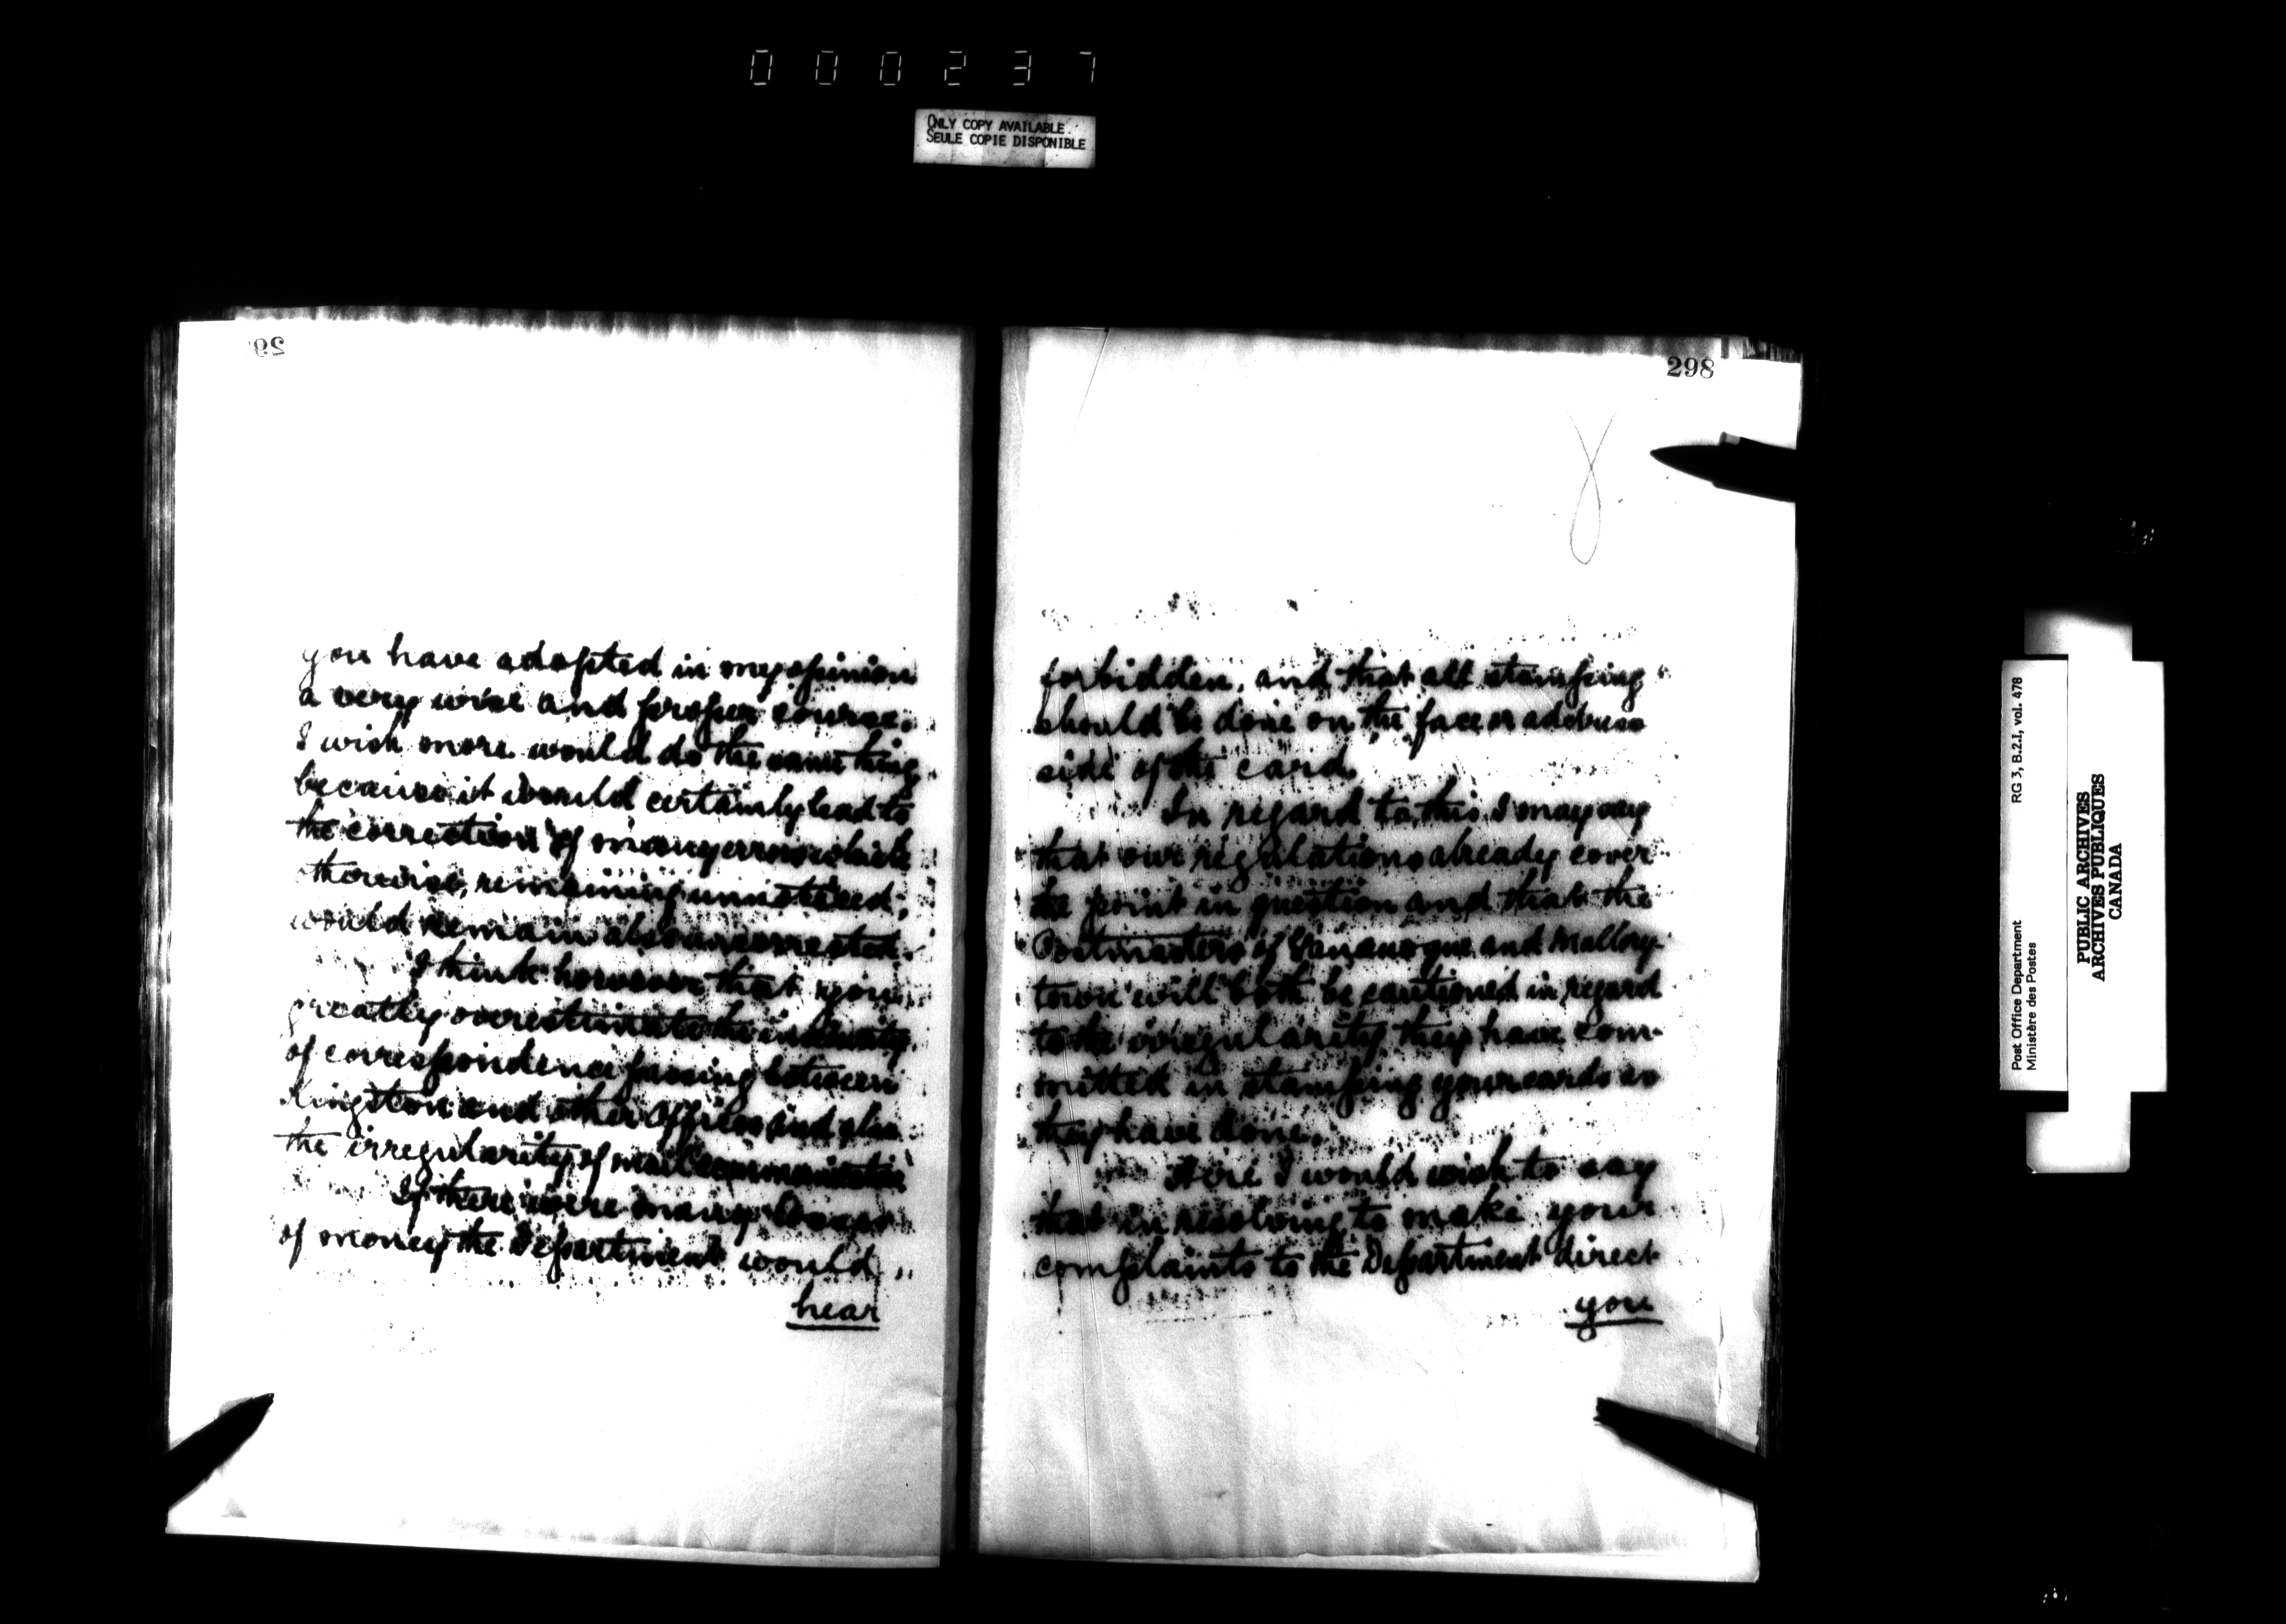 000237
ONLY COPY AVAILABLE
SEULE COPIE DISPONIBLE
29
you have adopted in my opinion
a very wise and proper course.
I wish more would do the same thing
because it would certainly lead to
the correction of many errors which
otherwise, remaining unnoticed,
would remain also uncorrected.
I think however that you
greatly overestimate the insecurity
of correspondence passing between
Kingston and other Offices and also
the irregularity of mail communication
If there were many losses
of money the Department would
hear
298
8
forbidden, and that all stamping
should be done on the face or address
side of the card.
In regard to this I may say
that our regulations already cover
the point in question and that the
Postmasters of Gananoque and Mallory-
town will both be cautioned in regard
to the irregularity they have com-
mitted in stamping your cards as
they have done.
Here I would wish to say
that in resolving to make your
complaints to the Department direct
you
Post Office Department RG 3, B.2.I, vol. 478
Ministère des Postes
PUBLIC ARCHIVES
ARCHIVES PUBLIQUES
CANADA